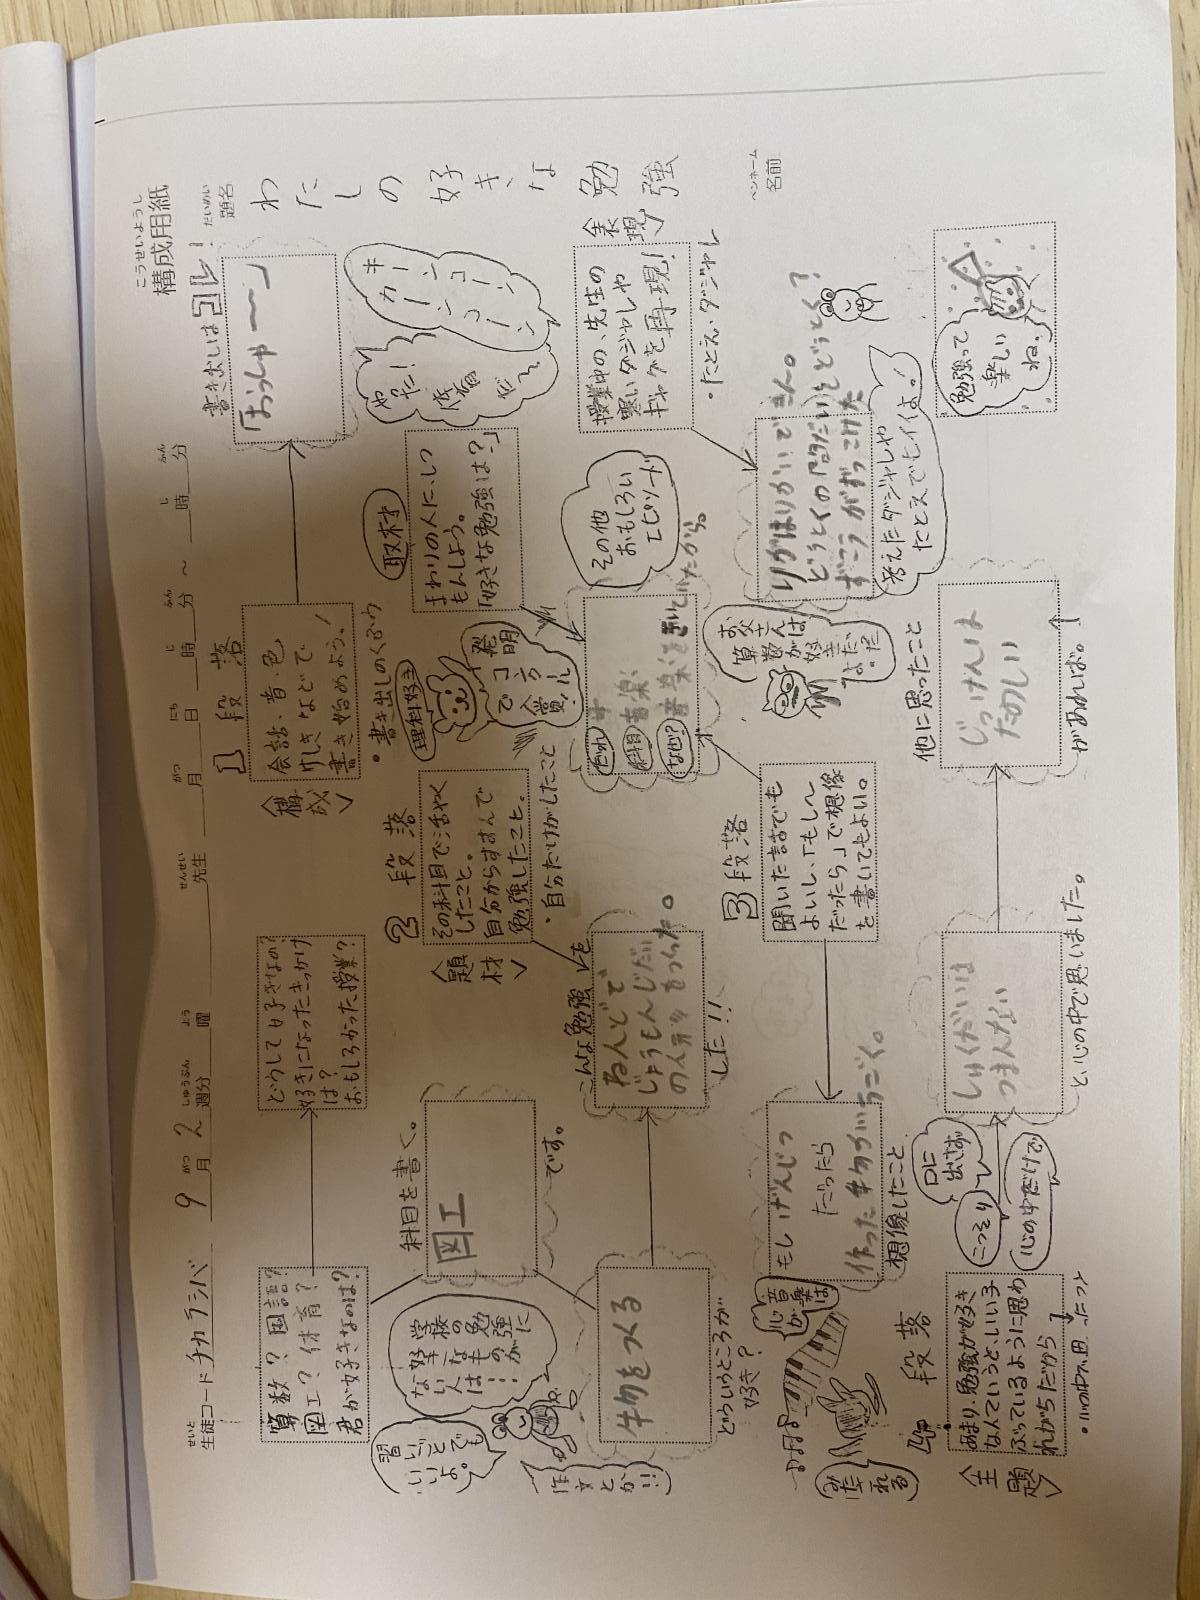 こうせいようし
構成用紙
せいと
生徒コード チカラシバ
9月2週分
がつ しゅうぶん よう
曜
せんせい
先生
がつ にち じ ふん
月 日 時 分 ～ 時 分
だいめい
題名
わたしの好きな勉強
ペンネーム
名前
1段落
算数？国語？
図工？体育？
君が好きなのは？
どうして好きなの？
好きになったきっかけ
は？
おもしろかった授業？
＜構成＞
会話・音・色・
けしきなどで
書き始めよう！
・書き出しのくふう
書き出しはコレ！
「おっしゃ〜〜」
キーンコーン
カーンコーン
やった！
体育だ〜
習いごとでも
いいよ。
学校の勉強に
好きなものが
ない人は…
作文とか…
科目を書く。
図工
です。
2段落
＜題材＞
その科目で活やく
したこと。
自分からすすんで
勉強したこと。
・自分だけがしたこと
理科好き
発明
コンクール
で入賞
取材
まわりの人にしつ
もんしよう。
「好きな勉強は？」
牛勿をつくる
どういうところが
好き？
こんな勉強を
ねんどで
じょうもんじだい
の人形をつくった。
した!!
だれ
科目 音楽
なぜ？ 音楽をきいていたから。
その他
おもしろい
エピソード
＜表現＞
授業中の、先生の
寒いダジャレや
ギャグを再現！
・たとえ、ダジャレ
3段落
聞いた話でも
よいし、「もし〜
だったら」で想像
を書いてもよい。
お父さんは
算数が
好きだっ
もしげんじつ
だったら
作った牛勿がいちごく。
想像したこと
音楽は
心が
みたされる
りかはりかいできん。
どうとくの問だいをどうとく？
ずこうがずっこけた
考えたダジャレや
たとえでもイイよ！
段落
＜主題＞
あまり、勉強が好き
なんていうと、いい子
ぶっているように思わ
れがちだから
こっそり
口に
出さず
心の中だけで
しゅくだいは
つまんない
と、心の中で思いました。
他に思ったこと
じっけんは
たのしい
があれば。
勉強って
楽しい
ね。